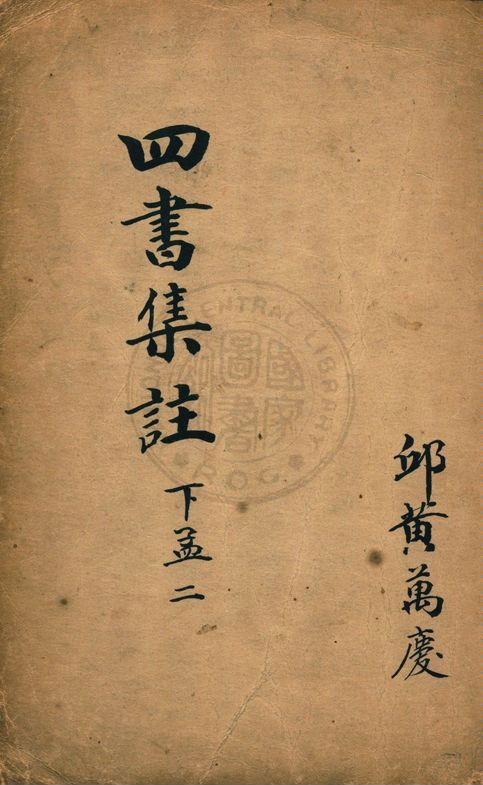 邱黃萬慶
四書集註
下孟二
CENTRAL LIBRARY
ROC
國家
圖書